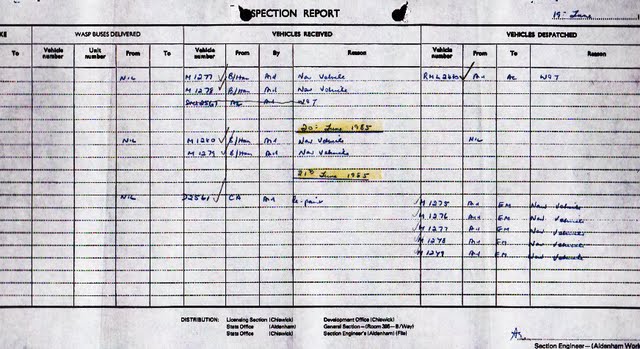 SPECTION REPORT
19th June
KE
WASP BUSES DELIVERED
VEHICLES RECEIVED
VEHICLES DESPATCHED
To Vehicle number Unit number From To Vehicle number From To Reason Vehicle number From To Reason
NIL M1277 B/Ham Ad New Vehicle RML2460 Ad AC
M1278 B/Ham Ad New Vehicle
20th June 1985
NIL M1280 B/Ham Ad New Vehicle NIL
M1279 B/Ham Ad New Vehicle
21st June 1985
NIL D2561 CA Ad Re-pair
M1275 Ad EM New Vehicle
M1276 Ad EM New Vehicle
M1277 Ad EM New Vehicle
M1278 Ad EM New Vehicle
M1279 Ad EM New Vehicle
DISTRIBUTION: Licensing Section (Chiswick) Development Office (Chiswick)
Stats Office (Aldenham) General Section—(Room 285—B/Way)
Stats Office (Chiswick) Section Engineer's (Aldenham) (File)
Section Engineer—(Aldenham Wor